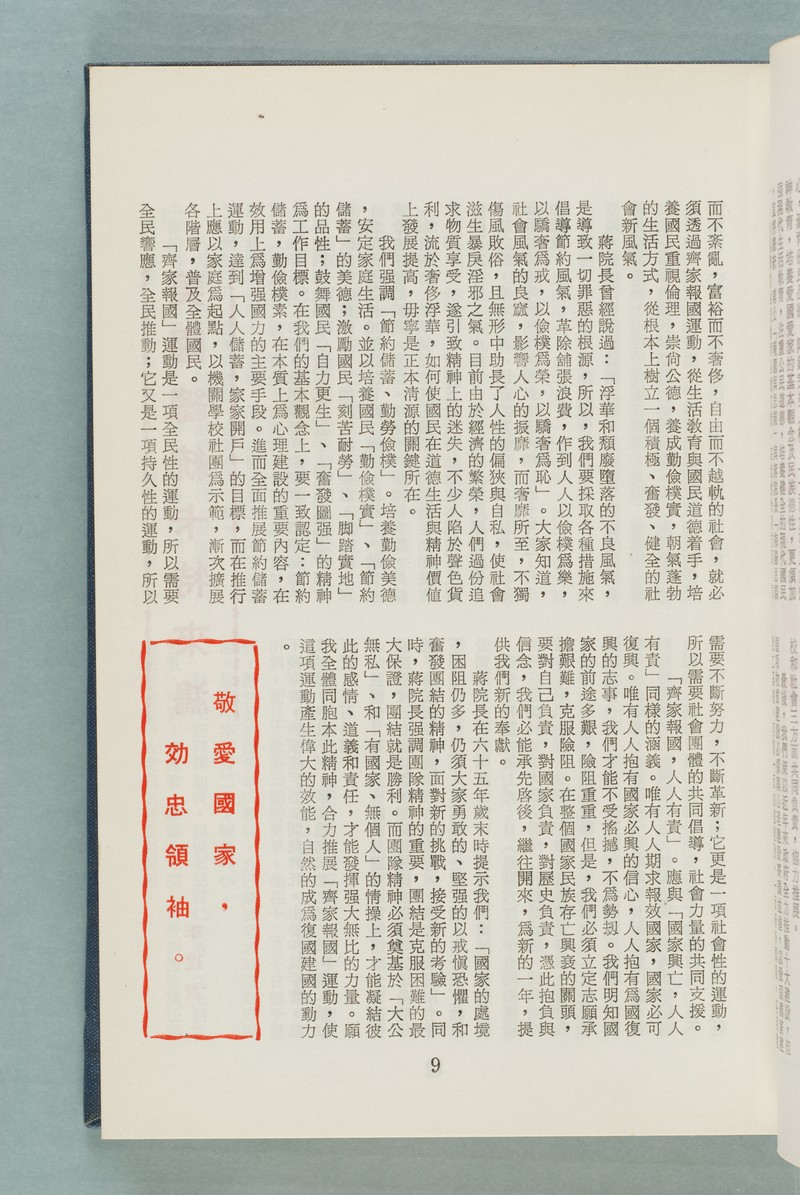 而不紊亂，富裕而不奢侈，自由而不越軌的社會，就必
須透過齊家報國運動，從生活敎育與國民道德着手，培
養國民重視倫理，崇尙公德，養成勤儉樸實，朝氣蓬勃
的生活方式，從根本上樹立一個積極、奮發、健全的社
會新風氣。
蔣院長曾經說過：「浮華和頹廢墮落的不良風氣，
是導致一切罪惡的根源，所以，我們要採取各種措施來
倡導節約風氣，革除舖張浪費，作到人人以儉樸爲樂，
以驕奢爲戒，以儉樸爲榮，以驕奢爲恥」。大家知道，
社會風氣的良窳，影響人心的振靡，而奢靡所至，不獨
傷風敗俗，且無形中助長了人性的偏狹與自私，使社會
滋生暴戾淫邪之氣。目前由於經濟的繁榮，人們過份追
求物質享受，遂引致精神上的迷失，不少人陷於聲色貨
利，流於奢侈浮華，如何使國民在道德生活與精神價值
上發展提高，毋寧是正本淸源的關鍵所在。
我們强調「節約儲蓄、勤勞儉樸」。培養勤儉美德
，安定家庭生活。並以培養國民「勤儉樸實」、「節約
儲蓄」的美德；激勵國民「刻苦耐勞」、「脚踏實地」
的品性；鼓舞國民「自力更生」、「奮發圖强」的精神
爲工作目標。在我們的基本觀念上，要一致認定：節約
儲蓄，勤儉樸素，在本質上爲心理建設的重要內容，在
效用上爲增强國力的主要手段。進而全面推展節約儲蓄
運動，達到「人人儲蓄，家家開戶」的目標，而在推行
上應以家庭爲起點，以機關學校社團爲示範，漸次擴展
各階層，普及全體國民。
「齊家報國」運動是一項全民性的運動，所以需要
全民響應，全民推動；它又是一項持久性的運動，所以
需要不斷努力，不斷革新；它更是一項社會性的運動，
所以需要社會團體的共同倡導，社會力量的共同支援。
「齊家報國，人人有責」。應與「國家興亡，人人
有責」同樣的涵義。唯有人人期求報效國家，國家必可
復興。唯有人人抱有國家必興的信心，人人抱有爲國復
興的志事，我們才能不受搖撼，不爲勢刼。我們明知國
家的前途多艱，險阻重重，但是，我們必須立定志願承
擔艱難，克服險阻。在整個國家民族存亡興衰的關頭，
要對自己負責，對國家負責，對歷史負責，憑此抱負與
信念，我們必能承先啓後，繼往開來，爲新的一年，提
供我們新的奉獻。
蔣院長在六十五年歲末時提示我們：「國家的處境
，困阻仍多，仍須大家勇敢的、堅强的以戒愼恐懼，和
奮發團結的精神，面對新的挑戰，接受新的考驗」。同
時，蔣院長强調團隊精神的重要，團結是克服困難的最
大保證，團結就是勝利。而團隊精神必須奠基於「大公
無私」、和「有國家、無個人」的情操上，才能凝結彼
此的感情、道義和責任，才能發揮强大無比的力量。願
我全體同胞本此精神，合力推展「齊家報國」運動，使
這項運動產生偉大的效能，自然的成爲復國建國的動力
。
敬愛國家，
効忠領袖。
9